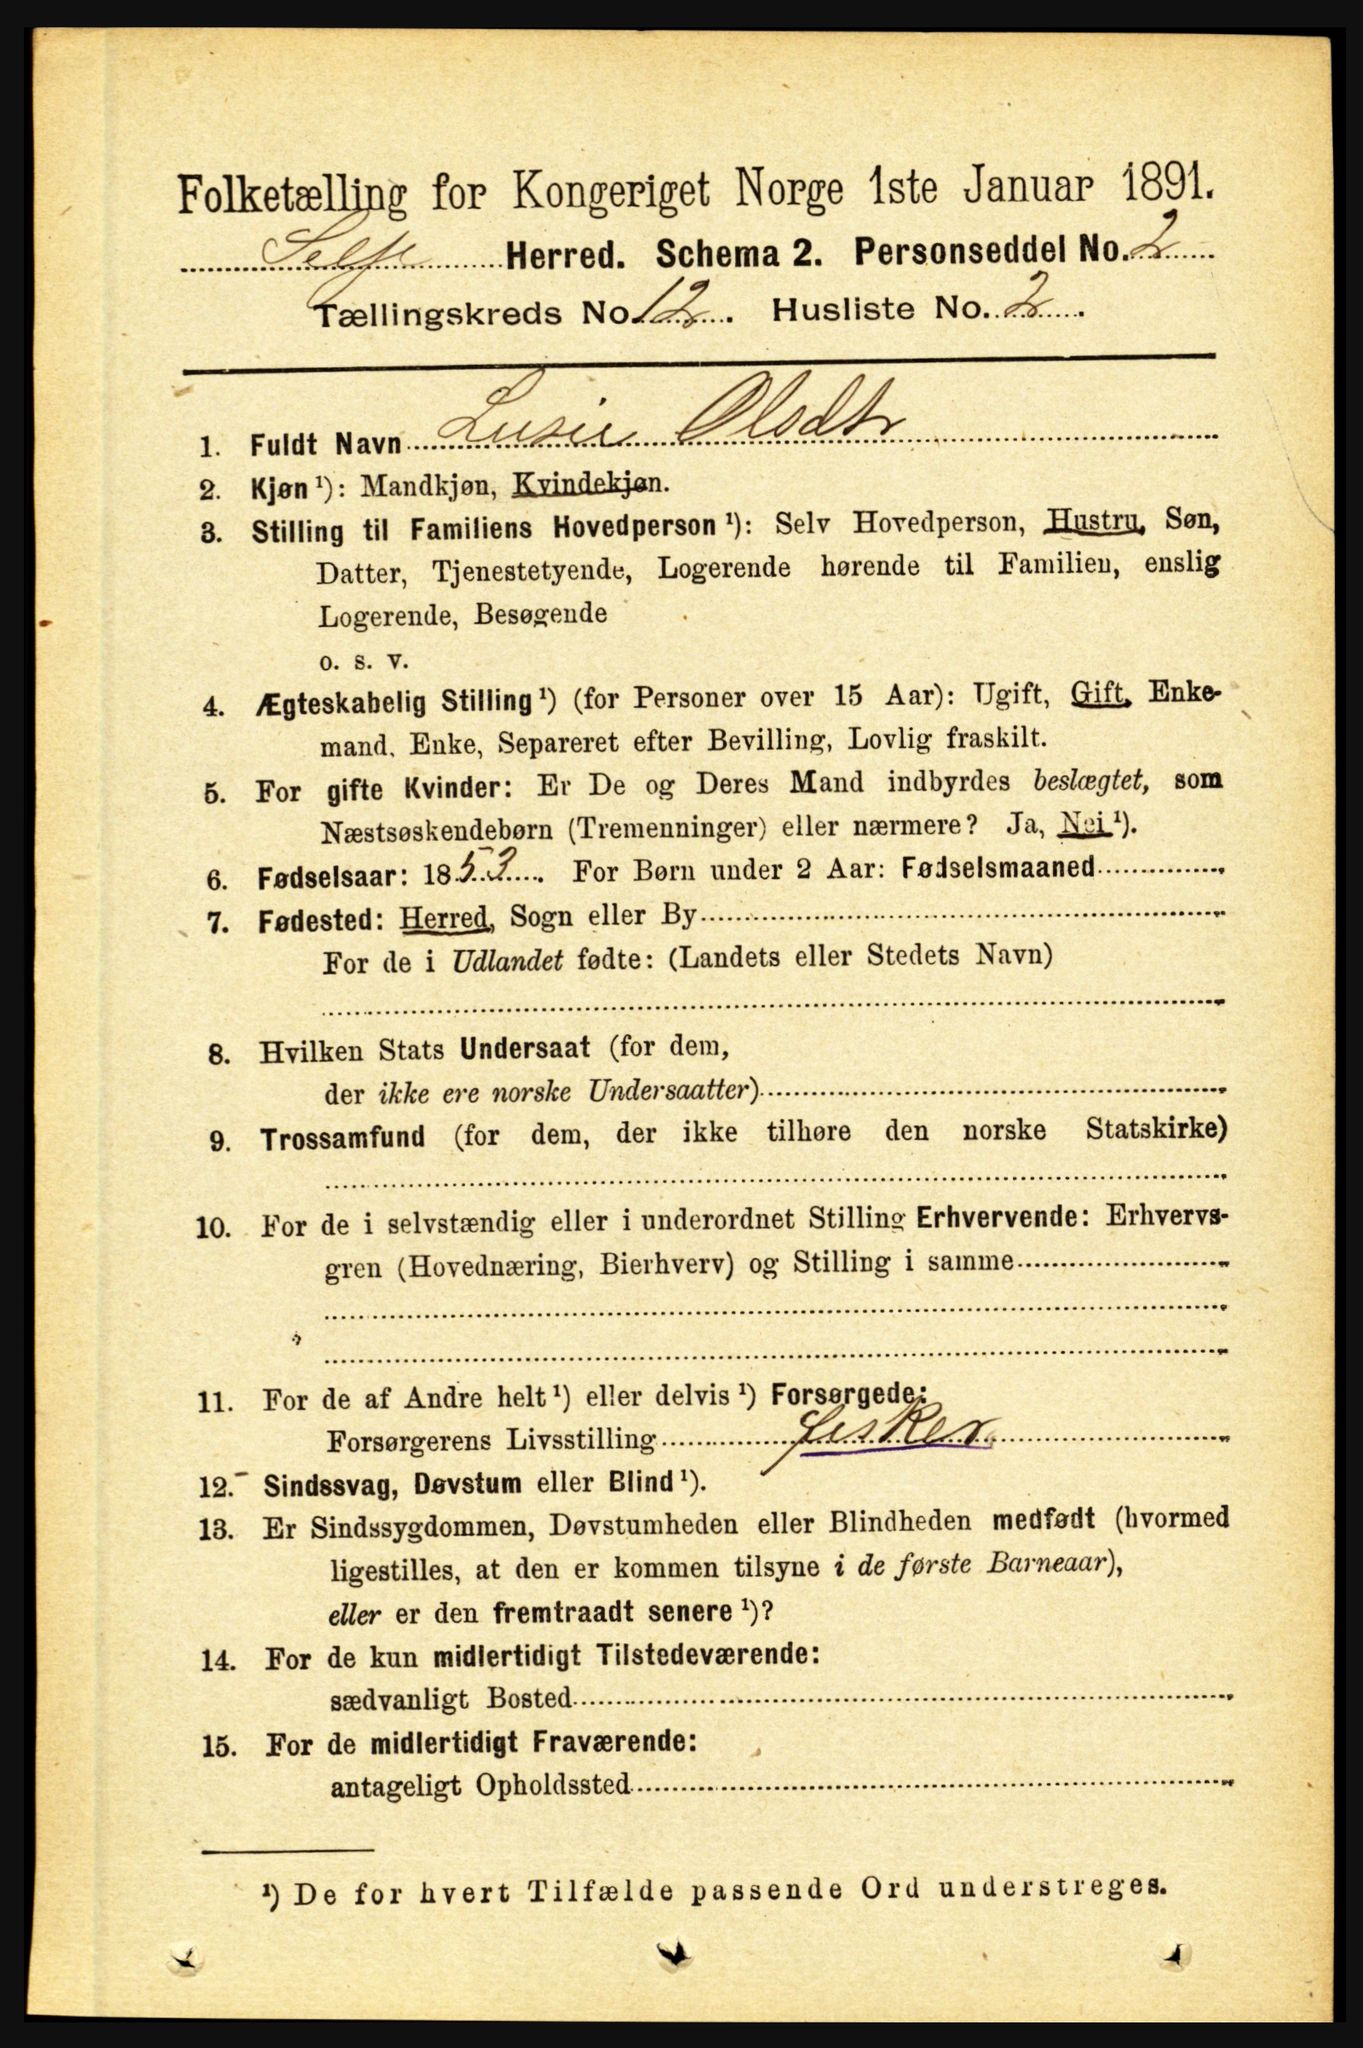 Folketælling for Kongeriget Norge 1ste Januar 1891.
Selje Herred. Schema 2. Personseddel No. 2
Tællingskreds No. 12. Husliste No. 2.
1. Fuldt Navn Lusie Olsdtr
2. Kjøn ¹): Mandkjøn, Kvindekjøn.
3. Stilling til Familiens Hovedperson ¹): Selv Hovedperson, Hustru, Søn,
Datter, Tjenestetyende, Logerende hørende til Familien, enslig
Logerende, Besøgende
o. s. v.
4. Ægteskabelig Stilling ¹) (for Personer over 15 Aar): Ugift, Gift, Enke-
mand, Enke, Separeret efter Bevilling, Lovlig fraskilt.
5. For gifte Kvinder: Er De og Deres Mand indbyrdes beslægtet, som
Næstsøskendebørn (Tremenninger) eller nærmere? Ja, Nei ¹).
6. Fødselsaar: 1853. For Børn under 2 Aar: Fødselsmaaned
7. Fødested: Herred, Sogn eller By
For de i Udlandet fødte: (Landets eller Stedets Navn)
8. Hvilken Stats Undersaat (for dem,
der ikke ere norske Undersaatter)
9. Trossamfund (for dem, der ikke tilhøre den norske Statskirke)
10. For de i selvstændig eller i underordnet Stilling Erhvervende: Erhvervs-
gren (Hovednæring, Bierhverv) og Stilling i samme
11. For de af Andre helt ¹) eller delvis ¹) Forsørgede:
Forsørgerens Livsstilling fisker
12. Sindssvag, Døvstum eller Blind ¹).
13. Er Sindssygdommen, Døvstumheden eller Blindheden medfødt (hvormed
ligestilles, at den er kommen tilsyne i de første Barneaar),
eller er den fremtraadt senere ¹)?
14. For de kun midlertidigt Tilstedeværende:
sædvanligt Bosted
15. For de midlertidigt Fraværende:
antageligt Opholdssted
¹) De for hvert Tilfælde passende Ord understreges.